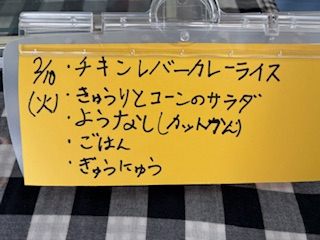 2/10 ・チキンレバーカレーライス
(火) ・きゅうりとコーンのサラダ
・ようなし(カットカン)
・ごはん
・ぎゅうにゅう